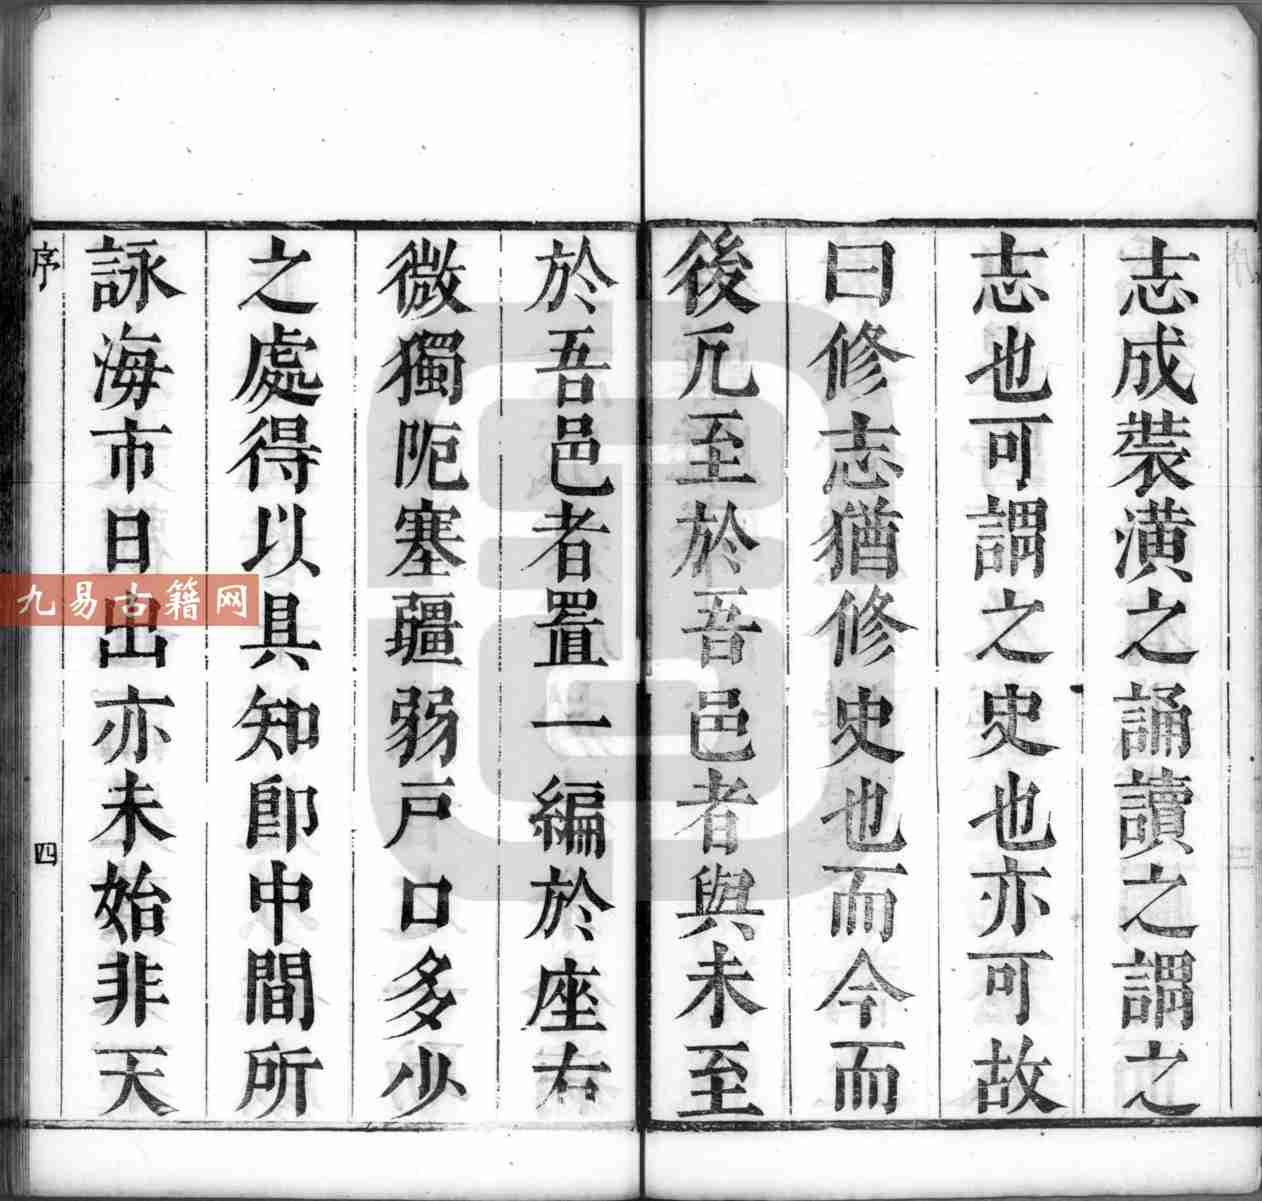 志成裝潢之誦讀之謂之
志也可謂之史也亦可故
曰修志猶修史也而今而
後凢至於吾邑者與未至
於吾邑者置一編於座右
微獨阨塞疆弱戸口多少
之處得以具知卽中間所
詠海市日出亦未始非天
序
四
九易古籍网